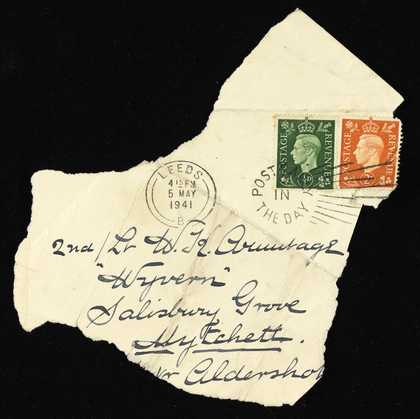 POSTAGE REVENUE
POSTAGE REVENUE
LEEDS
5 MAY
1941
B
POST
IN
THE DAY
2nd/Lt W. K. Armitage
"Wyvern"
Salisbury Grove
Mytchett.
Nr Aldershot